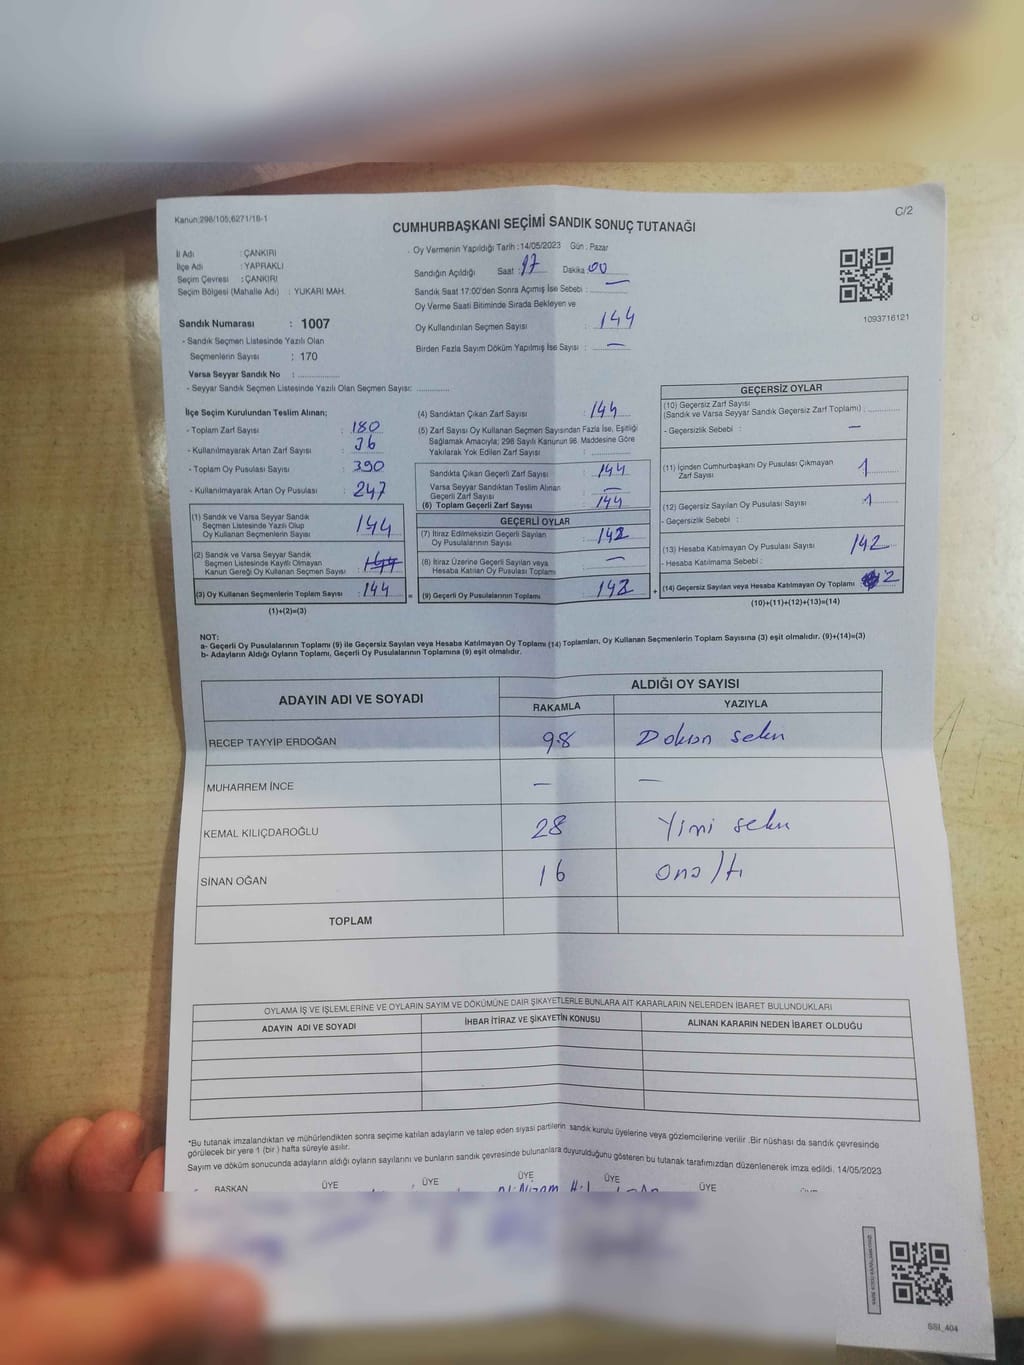 Kanun:298/105;6271/18-1
C/2
CUMHURBAŞKANI SEÇİMİ SANDIK SONUÇ TUTANAĞI
İl Adı : ÇANKIRI
İlçe Adı : YAPRAKLI
Seçim Çevresi : ÇANKIRI
Seçim Bölgesi (Mahalle Adı) : YUKARI MAH.
Oy Vermenin Yapıldığı Tarih :14/05/2023 Gün : Pazar
Sandığın Açıldığı Saat : 17 Dakika : 00
Sandık Saat 17:00'den Sonra Açımış İse Sebebi : —
Oy Verme Saati Bitiminde Sırada Bekleyen ve
Oy Kullandırılan Seçmen Sayısı : 144
Birden Fazla Sayım Döküm Yapılmış İse Sayısı : —
1093716121
Sandık Numarası : 1007
- Sandık Seçmen Listesinde Yazılı Olan
Seçmenlerin Sayısı : 170
Varsa Seyyar Sandık No :
- Seyyar Sandık Seçmen Listesinde Yazılı Olan Seçmen Sayısı:
İlçe Seçim Kurulundan Teslim Alınan;
- Toplam Zarf Sayısı : 180
- Kullanılmayarak Artan Zarf Sayısı : 36
- Toplam Oy Pusulası Sayısı : 390
- Kullanılmayarak Artan Oy Pusulası : 247
(1) Sandık ve Varsa Seyyar Sandık
Seçmen Listesinde Yazılı Olup
Oy Kullanan Seçmenlerin Sayısı : 144
(2) Sandık ve Varsa Seyyar Sandık
Seçmen Listesinde Kayıtlı Olmayan
Kanun Gereği Oy Kullanan Seçmen Sayısı : 144
(3) Oy Kullanan Seçmenlerin Toplam Sayısı : 144
(1)+(2)=(3)
(4) Sandıktan Çıkan Zarf Sayısı : 144
(5) Zarf Sayısı Oy Kullanan Seçmen Sayısından Fazla İse, Eşitliği
Sağlamak Amacıyla; 298 Sayılı Kanunun 98. Maddesine Göre
Yakılarak Yok Edilen Zarf Sayısı :
Sandıkta Çıkan Geçerli Zarf Sayısı : 144
Varsa Seyyar Sandıktan Teslim Alınan
Geçerli Zarf Sayısı : —
(6) Toplam Geçerli Zarf Sayısı : 144
GEÇERLİ OYLAR
(7) İtiraz Edilmeksizin Geçerli Sayılan
Oy Pusulalarının Sayısı : 142
(8) İtiraz Üzerine Geçerli Sayılan veya
Hesaba Katılan Oy Pusulası Toplamı : —
= (9) Geçerli Oy Pusulalarının Toplamı : 142 +
GEÇERSİZ OYLAR
(10) Geçersiz Zarf Sayısı
(Sandık ve Varsa Seyyar Sandık Geçersiz Zarf Toplamı) :
- Geçersizlik Sebebi : —
(11) İçinden Cumhurbaşkanı Oy Pusulası Çıkmayan
Zarf Sayısı : 1
(12) Geçersiz Sayılan Oy Pusulası Sayısı : 1
- Geçersizlik Sebebi :
(13) Hesaba Katılmayan Oy Pusulası Sayısı : 142
- Hesaba Katılmama Sebebi :
(14) Geçersiz Sayılan veya Hesaba Katılmayan Oy Toplamı : 2
(10)+(11)+(12)+(13)=(14)
NOT:
a- Geçerli Oy Pusulalarının Toplamı (9) ile Geçersiz Sayılan veya Hesaba Katılmayan Oy Toplamı (14) Toplamları, Oy Kullanan Seçmenlerin Toplam Sayısına (3) eşit olmalıdır. (9)+(14)=(3)
b- Adayların Aldığı Oyların Toplamı, Geçerli Oy Pusulalarının Toplamına (9) eşit olmalıdır.
ADAYIN ADI VE SOYADI
ALDIĞI OY SAYISI
RAKAMLA
YAZIYLA
RECEP TAYYİP ERDOĞAN 98 Doksan sekiz
MUHARREM İNCE — —
KEMAL KILIÇDAROĞLU 28 Yirmi sekiz
SİNAN OĞAN 16 Onaltı
TOPLAM
OYLAMA İŞ VE İŞLEMLERİNE VE OYLARIN SAYIM VE DÖKÜMÜNE DAİR ŞİKAYETLERLE BUNLARA AİT KARARLARIN NELERDEN İBARET BULUNDUKLARI
ADAYIN ADI VE SOYADI
İHBAR İTİRAZ VE ŞİKAYETİN KONUSU
ALINAN KARARIN NEDEN İBARET OLDUĞU
*Bu tutanak imzalandıktan ve mühürlendikten sonra seçime katılan adayların ve talep eden siyasi partilerin sandık kurulu üyelerine veya gözlemcilerine verilir .Bir nüshası da sandık çevresinde
görülecek bir yere 1 (bir ) hafta süreyle asılır.
Sayım ve döküm sonucunda adayların aldığı oyların sayılarını ve bunların sandık çevresinde bulunanlara duyurulduğunu gösteren bu tutanak tarafımızdan düzenlenerek imza edildi. 14/05/2023
BAŞKAN ÜYE ÜYE ÜYE ÜYE ÜYE
SSI_404